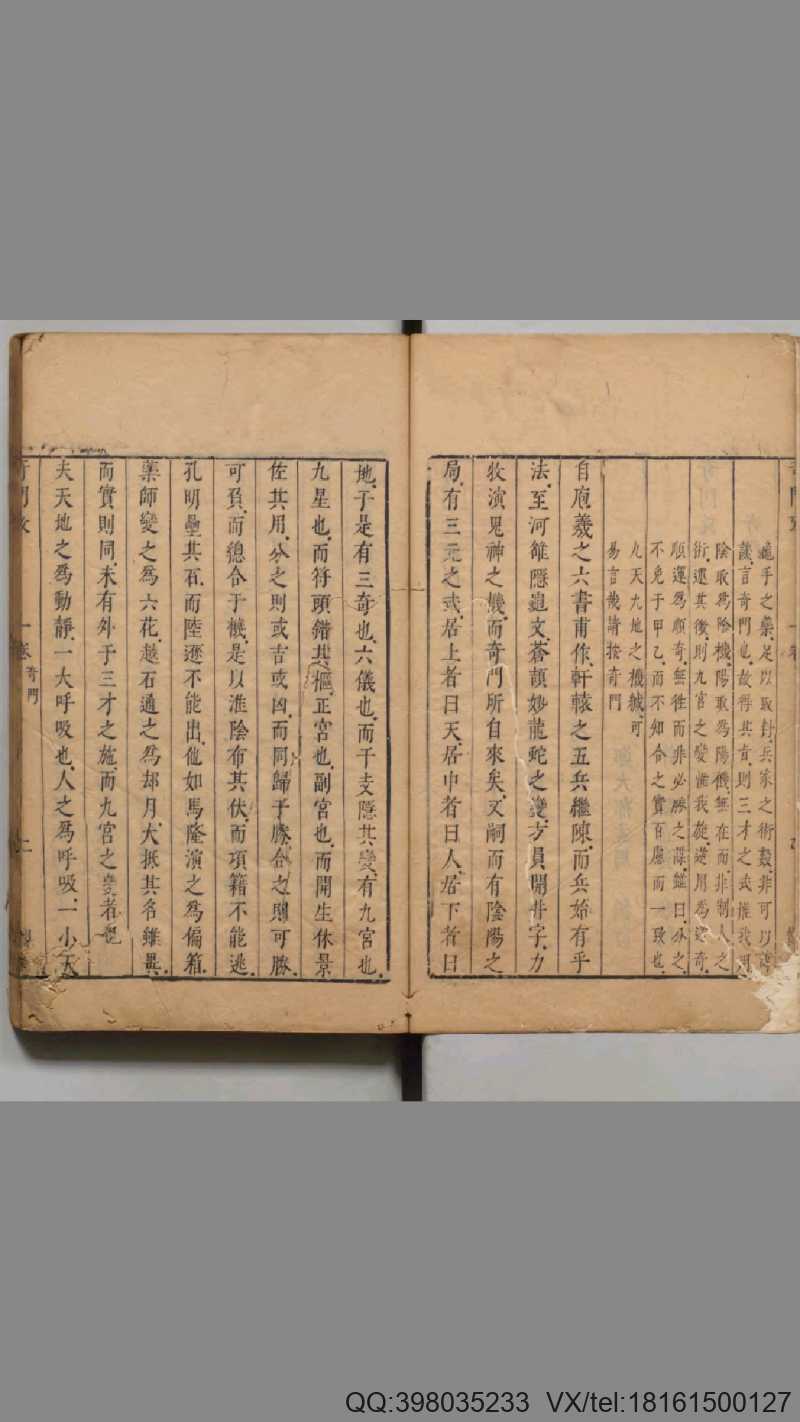 龜手之藥足以取封兵家之術數非可以
議言奇門也故得其竒則三才之式惟我用
陰取爲陰機陽取爲陽機無在而非制人之
術運其微則九宮之變惟我從逆用爲逆奇
順運爲順奇無往而非必勝之謀雖曰分之
不免于甲乙而不知合之實百慮而一致也
九天九地之機緘可
易言哉請按奇門
自庖羲之六書甫作軒轅之五兵繼陳而兵始有乎
法至河雒隱遁文蒼頡妙龍蛇之變方員開井字力
牧演鬼神之機而奇門所自來矣又嗣而有陰陽之
局有三元之式居上者曰天居中者曰人居下者曰
地于是有三奇也六儀也而干支隱其變有九宮也
九星也而符頭錯其樞正宮也副宮也而開生休景
佐其用分之則或吉或凶而同歸于勝合之則可勝
可負而總合于機是以淮陰布其伏而項籍不能逃
孔明壘其石而陸遜不能出他如馬隆演之爲偏箱
藥師變之爲六花越石通之爲却月大抵其名雖異
而實則同未有外于三才之施而九宮之變者也
夫天地之爲動靜一大呼吸也人之爲呼吸一小天
一卷 奇門
QQ:398035233 VX/tel:18161500127